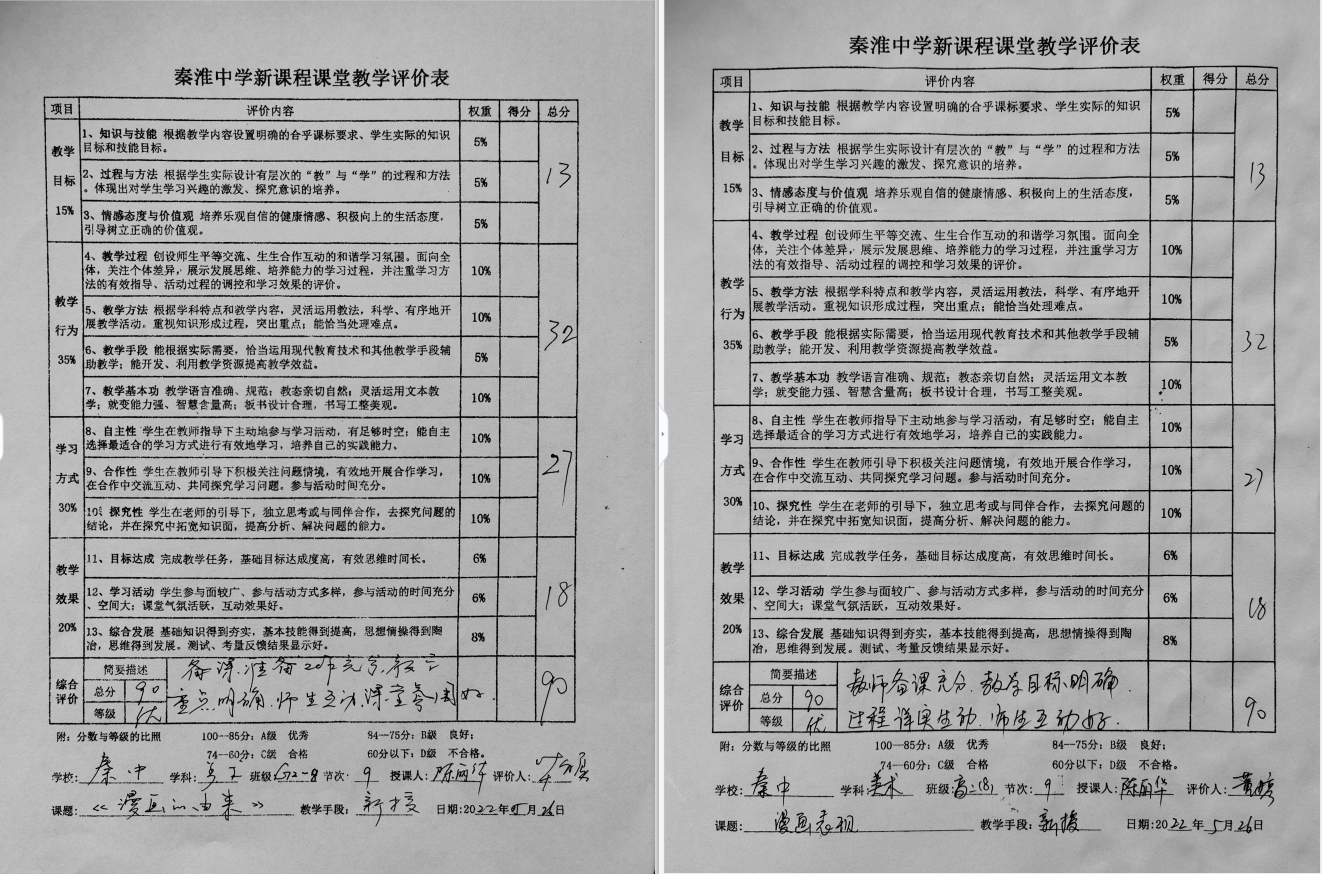 秦淮中学新课程课堂教学评价表
项目 评价内容 权重 得分 总分
教学目标 15%
1、知识与技能 根据教学内容设置明确的合乎课标要求、学生实际的知识
目标和技能目标。 5%
2、过程与方法 根据学生实际设计有层次的“教”与“学”的过程和方法
。体现出对学生学习兴趣的激发、探究意识的培养。 5%
3、情感态度与价值观 培养乐观自信的健康情感、积极向上的生活态度，
引导树立正确的价值观。 5%
13
教学行为 35%
4、教学过程 创设师生平等交流、生生合作互动的和谐学习氛围。面向全
体，关注个体差异，展示发展思维、培养能力的学习过程，并注重学习方
法的有效指导、活动过程的调控和学习效果的评价。 10%
5、教学方法 根据学科特点和教学内容，灵活运用教法，科学、有序地开
展教学活动。重视知识形成过程，突出重点；能恰当处理难点。 10%
6、教学手段 能根据实际需要，恰当运用现代教育技术和其他教学手段辅
助教学；能开发、利用教学资源提高教学效益。 5%
7、教学基本功 教学语言准确、规范；教态亲切自然；灵活运用文本教
学；就变能力强、智慧含量高；板书设计合理，书写工整美观。 10%
32
学习方式 30%
8、自主性 学生在教师指导下主动地参与学习活动，有足够时空；能自主
选择最适合的学习方式进行有效地学习，培养自己的实践能力。 10%
9、合作性 学生在教师引导下积极关注问题情境，有效地开展合作学习，
在合作中交流互动、共同探究学习问题。参与活动时间充分。 10%
10、探究性 学生在老师的引导下，独立思考或与同伴合作，去探究问题的
结论，并在探究中拓宽知识面，提高分析、解决问题的能力。 10%
27
教学效果 20%
11、目标达成 完成教学任务，基础目标达成度高，有效思维时间长。 6%
12、学习活动 学生参与面较广、参与活动方式多样，参与活动的时间充分
、空间大；课堂气氛活跃，互动效果好。 6%
13、综合发展 基础知识得到夯实，基本技能得到提高，思想情操得到陶
冶，思维得到发展。测试、考量反馈结果显示好。 8%
18
综合评价 简要描述 备课准备充分，
总分 90 重点明确，师生互动，课堂氛围好。 90
等级 优
附：分数与等级的比照 100--85分：A级 优秀 84--75分：B级 良好；
74--60分：C级 合格 60分以下：D级 不合格。
学校：秦中 学科： 班级： 节次：9 授课人：陈丽华 评价人：
课题：《漫画的由来》 教学手段：新授 日期：2022年5月26日
秦淮中学新课程课堂教学评价表
项目 评价内容 权重 得分 总分
教学目标 15%
1、知识与技能 根据教学内容设置明确的合乎课标要求、学生实际的知识
目标和技能目标。 5%
2、过程与方法 根据学生实际设计有层次的“教”与“学”的过程和方法
。体现出对学生学习兴趣的激发、探究意识的培养。 5%
3、情感态度与价值观 培养乐观自信的健康情感、积极向上的生活态度，
引导树立正确的价值观。 5%
13
教学行为 35%
4、教学过程 创设师生平等交流、生生合作互动的和谐学习氛围。面向全
体，关注个体差异，展示发展思维、培养能力的学习过程，并注重学习方
法的有效指导、活动过程的调控和学习效果的评价。 10%
5、教学方法 根据学科特点和教学内容，灵活运用教法，科学、有序地开
展教学活动。重视知识形成过程，突出重点；能恰当处理难点。 10%
6、教学手段 能根据实际需要，恰当运用现代教育技术和其他教学手段辅
助教学；能开发、利用教学资源提高教学效益。 5%
7、教学基本功 教学语言准确、规范；教态亲切自然；灵活运用文本教
学；就变能力强、智慧含量高；板书设计合理，书写工整美观。 10%
32
学习方式 30%
8、自主性 学生在教师指导下主动地参与学习活动，有足够时空；能自主
选择最适合的学习方式进行有效地学习，培养自己的实践能力。 10%
9、合作性 学生在教师引导下积极关注问题情境，有效地开展合作学习，
在合作中交流互动、共同探究学习问题。参与活动时间充分。 10%
10、探究性 学生在老师的引导下，独立思考或与同伴合作，去探究问题的
结论，并在探究中拓宽知识面，提高分析、解决问题的能力。 10%
27
教学效果 20%
11、目标达成 完成教学任务，基础目标达成度高，有效思维时间长。 6%
12、学习活动 学生参与面较广、参与活动方式多样，参与活动的时间充分
、空间大；课堂气氛活跃，互动效果好。 6%
13、综合发展 基础知识得到夯实，基本技能得到提高，思想情操得到陶
冶，思维得到发展。测试、考量反馈结果显示好。 8%
18
综合评价 简要描述 教师备课充分，教学目标明确，
总分 90 过程详实生动，师生互动好。 90
等级 优
附：分数与等级的比照 100--85分：A级 优秀 84--75分：B级 良好；
74--60分：C级 合格 60分以下：D级 不合格。
学校：秦中 学科：美术 班级：高二(8) 节次：9 授课人：陈丽华 评价人：黄
课题：漫画表现 教学手段：新授 日期：2022年5月26日